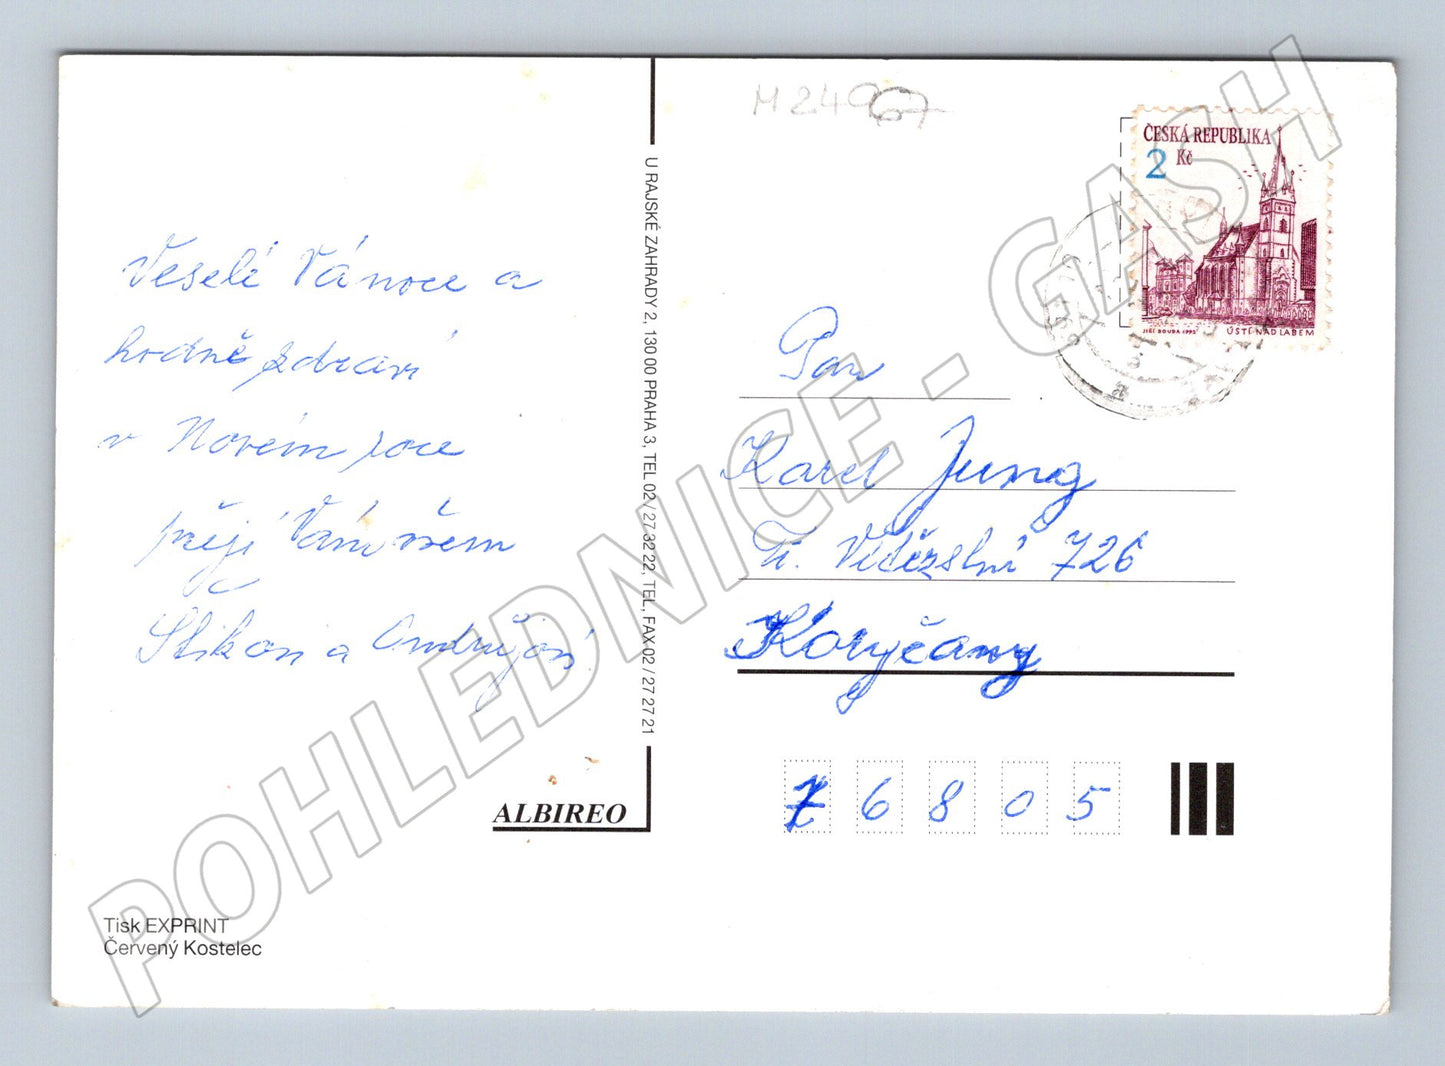 Veselé Vánoce a
hodně zdraví
v Novém roce
přejí Vám všem
a
M 24
ČESKÁ REPUBLIKA
2 Kč
JIŘÍ BOUDA 1993 ÚSTÍ NAD LABEM
Pan
Karel Jung
Tř. Vítězství 726
Koryčany
76805
U RAJSKÉ ZAHRADY 2, 130 00 PRAHA 3, TEL. 02 / 27 32 22, TEL, FAX 02 / 27 27 21
ALBIREO
Tisk EXPRINT
Červený Kostelec
POHLEDNICE - GASH